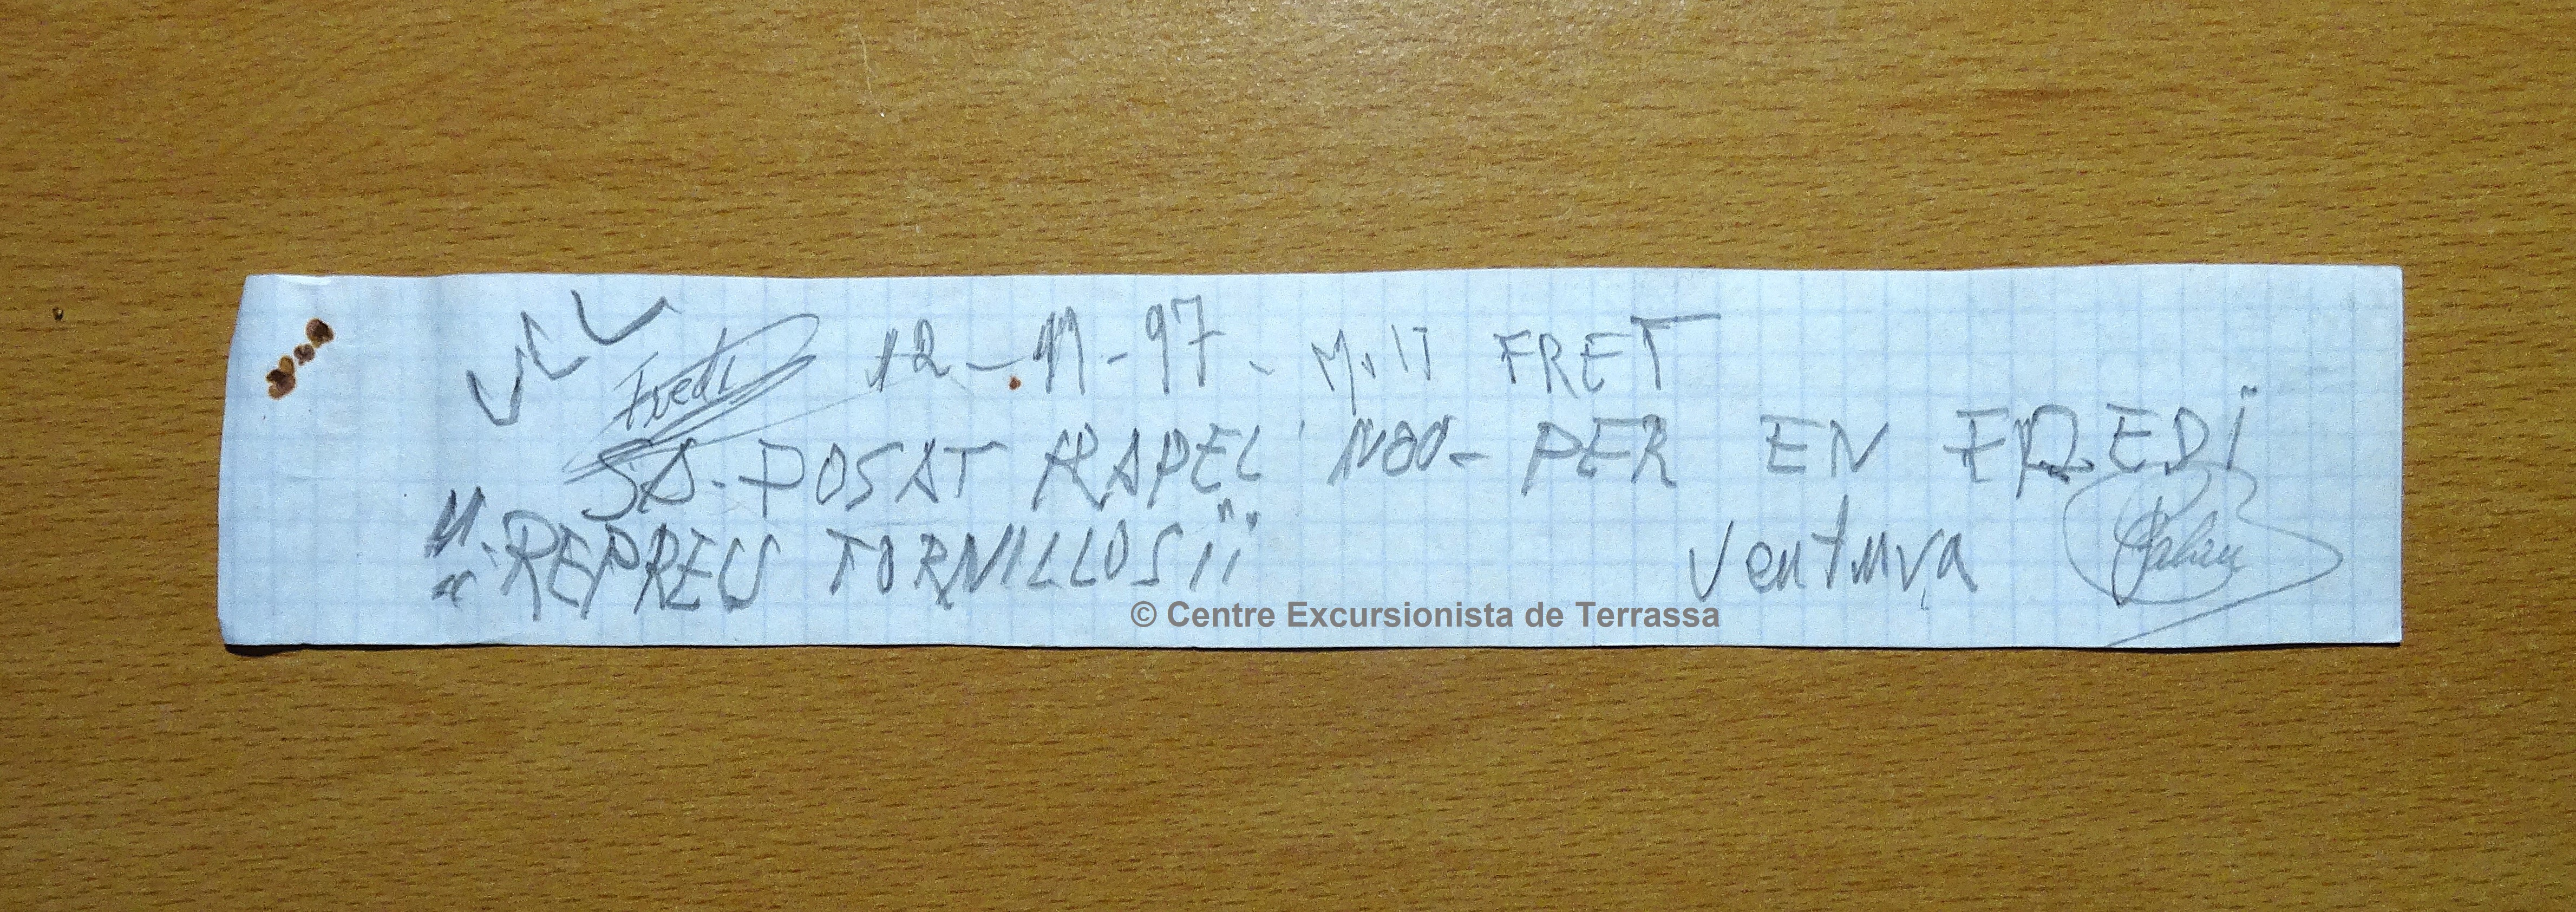 Fredi 12-11-97- Molt FRET
SA-POSAT RAPEL NOU- PER EN FREDI
"-REPREU TORNILLOS¡¡ Ventura
© Centre Excursionista de Terrassa